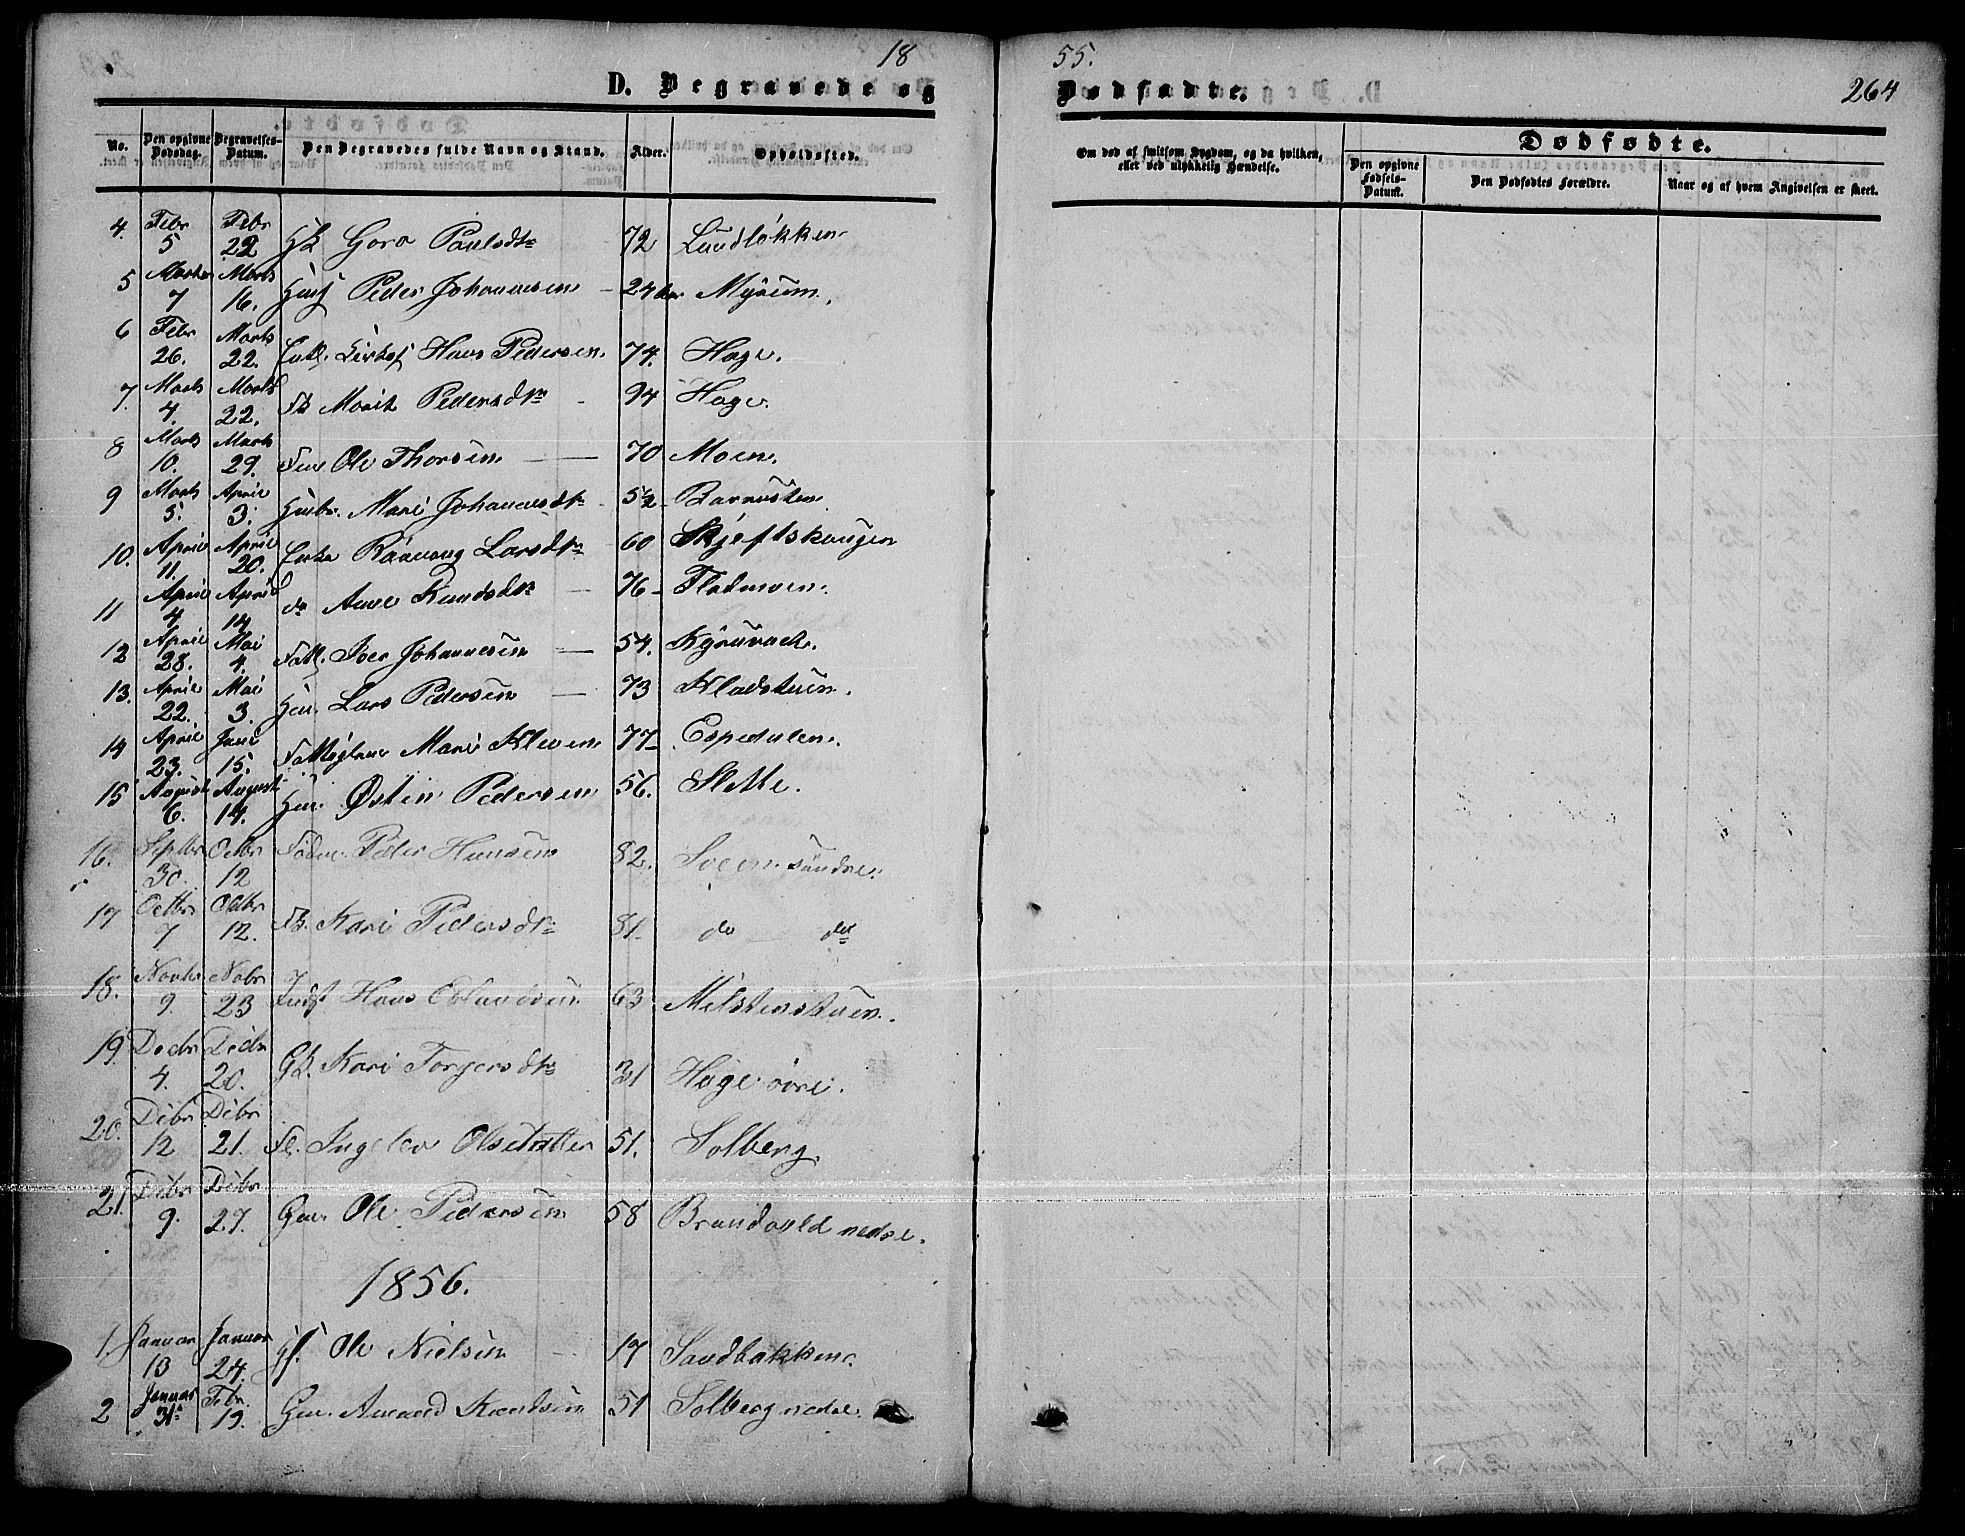 18
55.
264
D. Begravede og
Dødfødte.
No.
Den opgivne Dødsdag.
Begravelses-Datum.
Den Begravedes fulde Navn og Stand.
Alder.
Opholdssted.
Om død af smitsom Sygdom, og da hvilken, eller ved ulykkelig Hændelse.
Dødfødte.
Den opgivne Fødsels-Datum.
Den Dødfødtes Forældre.
Naar og af hvem Angivelsen er skeet.
4. Febr 5 Febr 22 Gk Goro Paulsdtr 72 Lundløkken
5 Marts 7 Marts 16. Peder Johannesen 24 Myrum.
6 Febr 26. Marts 22. Hans Pedersen 74. Hage.
7. Marts 4. Marts 22. Fk Marit Pedersdtr 94 Hage.
8 Marts 10. Marts 29. Ole Thorsen 70 Moen.
9 Marts 5. April 3. Mari Johannesdtr 52
10. April 11. April 20. Enke Larsdtr 60 Skjeftskaugen
11 April 4 April 14 do Anne Knudsdtr 76 Flatmoen.
12 April 28. Mai 4. Iver Johannesen 54.
13. April 22. Mai 3. Lars Pedersen 73 Kladstuen.
14 April 23. Juni 15. Mari Kleven 77 Espedalen.
15 August 6. August 14. Østen Pedersen 56. Slette.
16. Septbr 30. Octbr 12 Peder Hansen 82. Sveen søndre.
17 Octbr 7 Octbr 12. Fk. Kari Pedersdtr 81. do do
18. Novbr 9. Nobr 23 Indst Hans Erlandsen 63 Milstensstuen.
19. Decbr 4. Decbr 20. Gk. Kari Torgersdtr 31 Hage øvre.
20. Debr 12 Debr 21. Ingelev Olsdatter 51. Solberg.
21. Debr 9. Debr 27. Gm. Ole Pedersen 58 Brandvold nedre.
1856.
1. Januar 13 Januar 24. Ole Nielsen 17 Sandbakken.
2 Januar 31 Febr. 19. Gm. Amund Knudsen 51 Solberg nedre